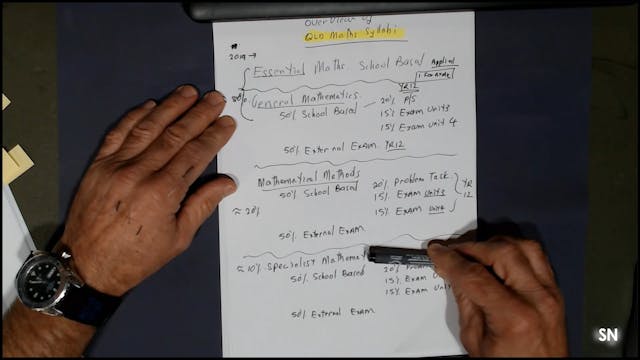 Overview of
QLD Maths Syllabi
2019 →
Essential Maths School Based Applied
80%
General Mathematics. YR12
50% School Based — 20% P/S
15% Exam Unit 3
15% Exam Unit 4
50% External Exam YR12
Mathematical Methods
50% School Based 20% Problem Task.
15% Exam Unit 3 YR
≈ 20% 15% Exam Unit 4 12
50% External Exam
≈ 10% Specialist Mathemat
50% School Based 20%
15% Exam U
15% Exam Unit
50% External Exam
SN